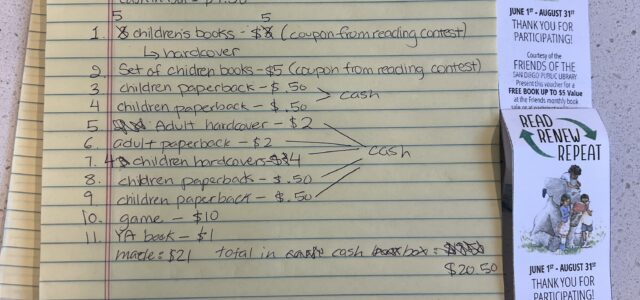 5 5
1. children's books - $ (coupon from reading contest)
↳ hardcover
2. Set of chidren books - $5 (coupon from reading contest)
3 children paperback - $.50
4 children paperback - $.50
> cash
5. Adult hardcover - $2
6. adult paperback - $2
7. 4 children hardcovers - $4
cash
8. children paperback - $.50
9. children paperback - $.50
10. game - $10
11. YA book - $1
made: $21 total in cash box:
$20.50
JUNE 1ST - AUGUST 31ST
THANK YOU FOR
PARTICIPATING!
Courtesy of the
FRIENDS OF THE
SAN DIEGO PUBLIC LIBRARY
Present this voucher for a
FREE BOOK UP TO $5 Value
at the Friends monthly book
READ
RENEW
REPEAT
JUNE 1ST - AUGUST 31ST
THANK YOU FOR
PARTICIPATING!